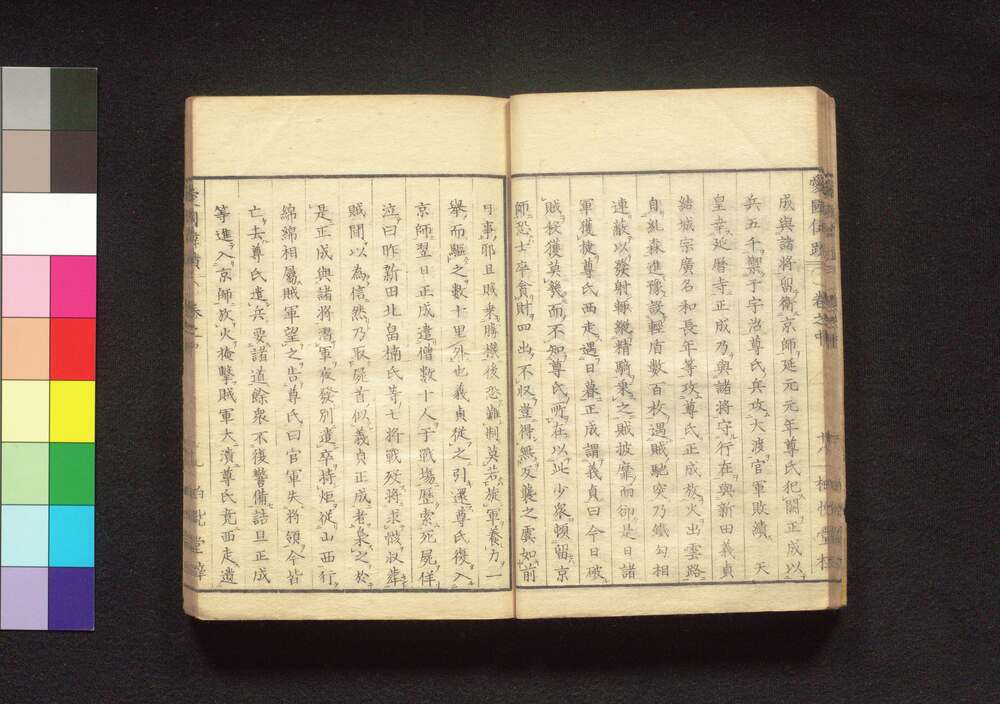 成與諸將留衛京師延元元年尊氏犯闕正成以
兵五千禦于宇治尊氏兵攻大渡官軍敗績天
皇幸延曆寺正成乃與諸將守行在與新田義貞
結城宗廣名和長年等攻尊氏正成放火出雲路
自糺森進豫設輕盾數百枚遇賊馳突乃鐵勾相
連蔽以發射輙縱精騎乘之賊披靡而卻是日諸
軍獲捷尊氏西走遇日暮正成謂義貞曰今日破
賊校獲莫幾而不知尊氏所在以此少衆頓留京
師恐士卒貪財四出不収豈得無反襲之虞如前
日事耶且賊乘勝撲後恐難制莫若旋軍養力一
舉而驅之數十里外也義貞從之引還尊氏復入
京師翌日正成遣僧數十人于戰場歷索死屍佯
泣曰昨新田北畠楠氏等七將戰歿將求骸収葬
賊聞以為信然乃取屍首似義貞正成者梟之於
是正成與諸將潛軍夜發別遣卒持炬從山西行
綿綿相屬賊軍望之告尊氏曰官軍失將領今皆
亡去尊氏遣兵要諸道餘衆不復警備詰旦正成
等進入京師放火掩擊賊軍大潰尊氏竟西走遺